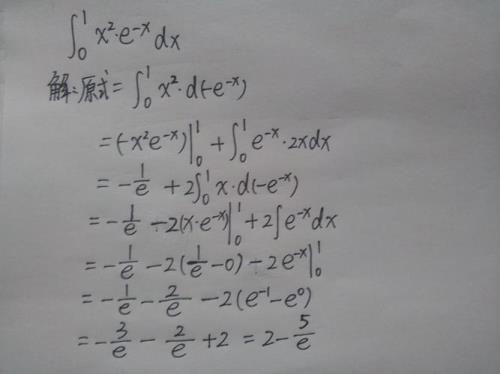 ∫₀¹ x²·e⁻ˣ dx
解:原式 = ∫₀¹ x²·d(-e⁻ˣ)
= (-x²e⁻ˣ)|₀¹ + ∫₀¹ e⁻ˣ·2xdx
= -1/e + 2∫₀¹ x·d(-e⁻ˣ)
= -1/e - 2(x·e⁻ˣ)|₀¹ + 2∫e⁻ˣdx
= -1/e - 2(1/e - 0) - 2e⁻ˣ|₀¹
= -1/e - 2/e - 2(e⁻¹ - e⁰)
= -3/e - 2/e + 2 = 2 - 5/e